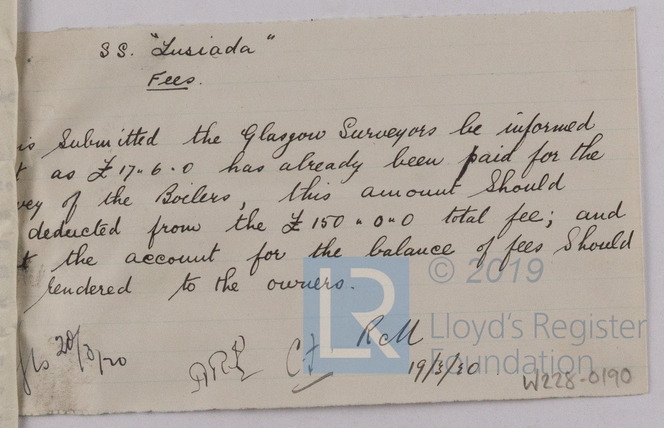 SS. "Lusiada"
Fees.
is Submitted the Glasgow Surveyors be informed
t as £17.. 6. 0 has already been paid for the
vey of the Boilers, this amount Should
deducted from the £150 " 0 " 0 total fee; and
t the account for the balance of fees Should
rendered to the owners.
© 2019
LR
Lloyd's Register
Foundation
RCM
19/3/20
20/3/20
W228-0190